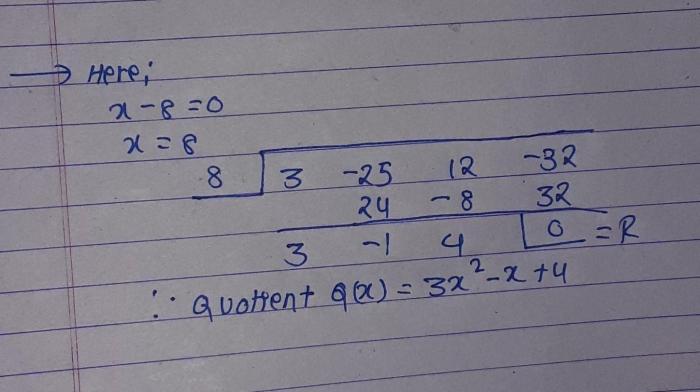 → Here;
x - 8 = 0
x = 8
8 3 -25 12 -32
24 -8 32
3 -1 4 0 = R
∴ Quotient Q(x) = 3x² - x + 4